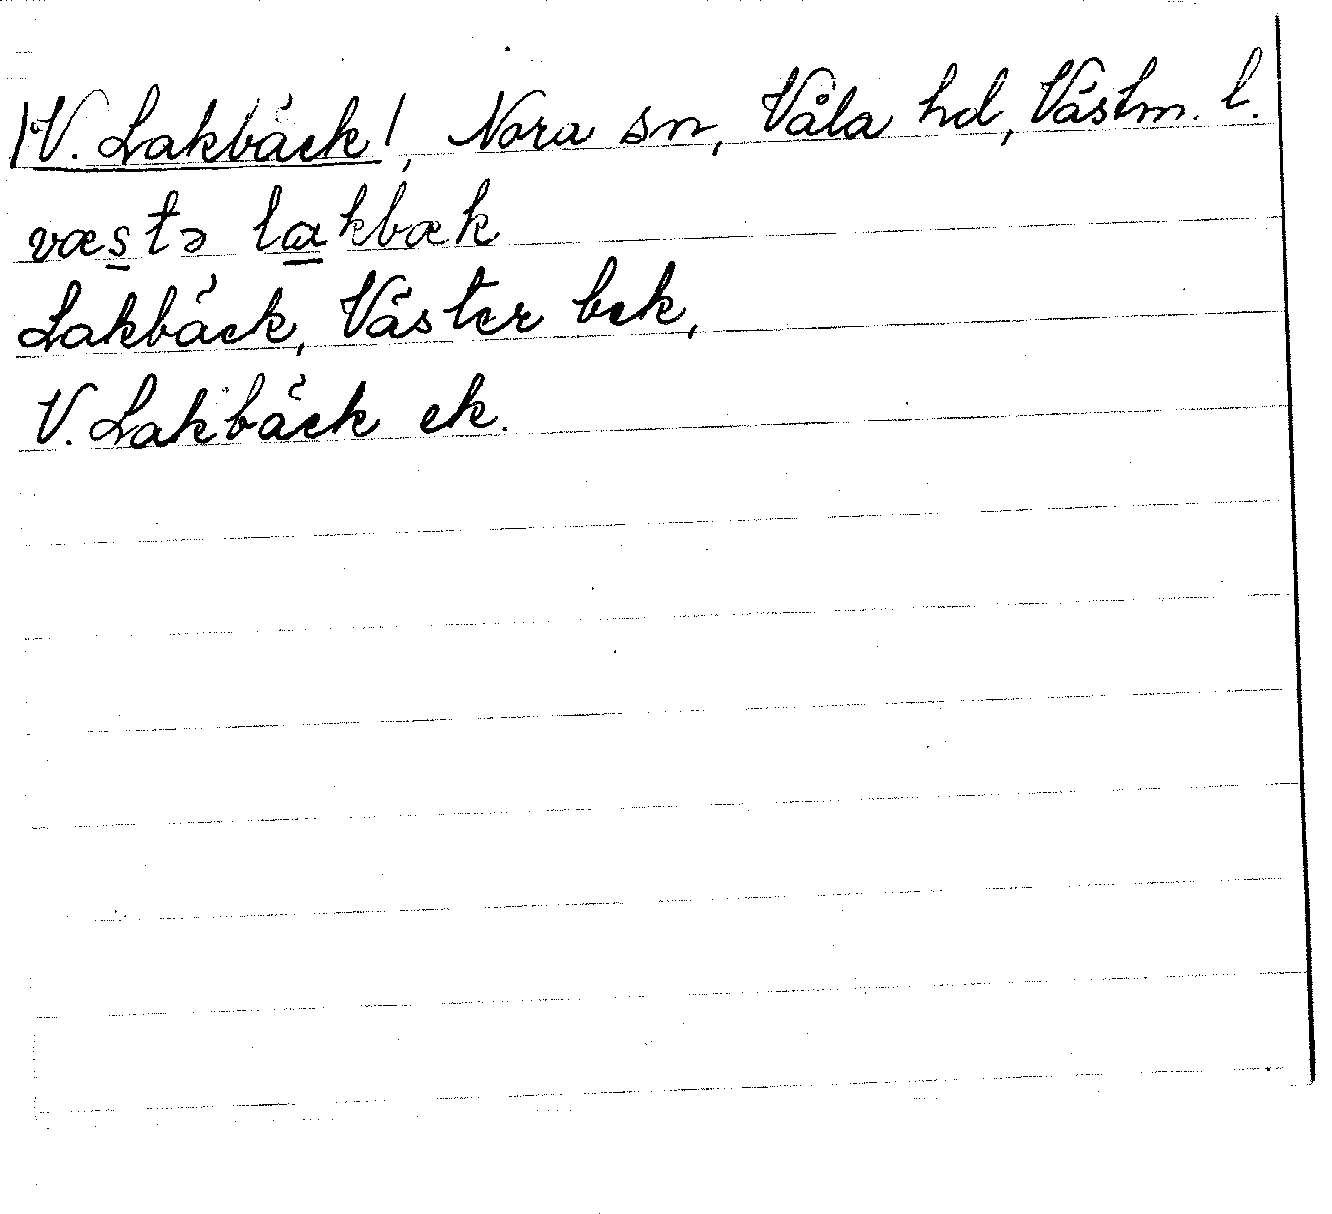 /V. Lakbäck/, Nora sn, Våla hd, Västm. l.
væstə lakbæk
Lakbäck, Väster bek,
V. Lakbäck ek.